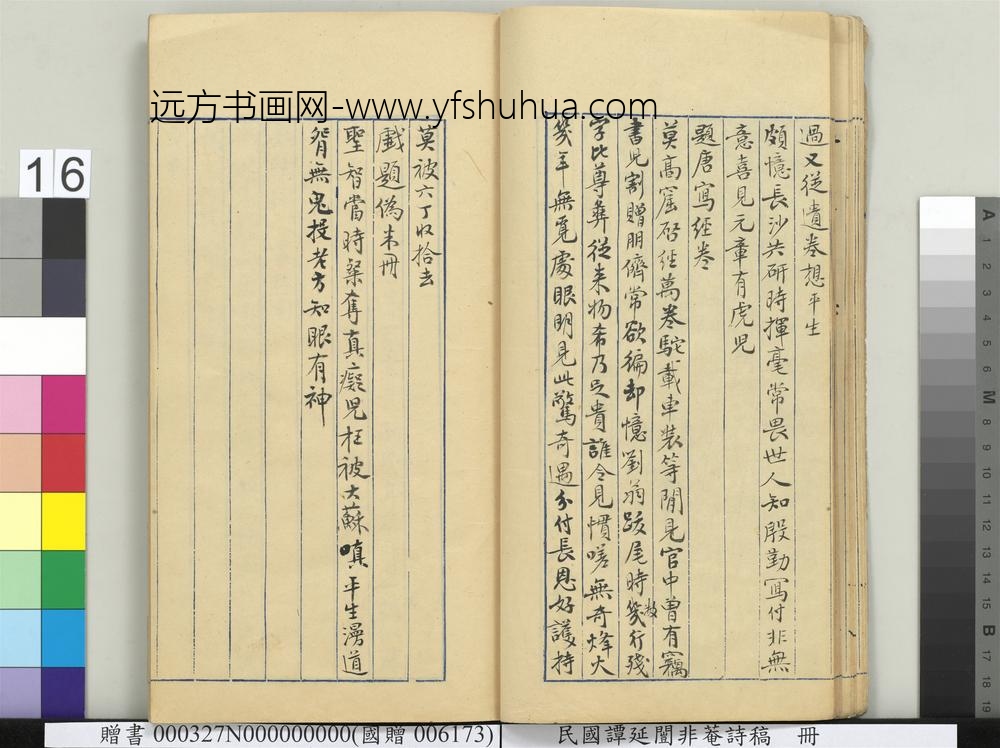 远方书画网-www.yfshuhua.com
過又從遺卷想平生
頗憶長沙共研時揮毫常畏世人知殷勤寫付非無
意喜見元章有虎兒
題唐寫經卷
莫高窟啓經萬卷駝載車裝等閒見官中曾有竊
書兒割贈朋儕常欲徧却憶劉翁跋尾時數行殘
字比尊彝從来物希乃足貴誰令見慣嗟無奇烽火
幾年無覓處眼明見此驚奇遇分付長恩好護持
莫被六丁收拾去
戲題偽朱冊
聖智當時槊奪真癡兒枉被大蘇嗔平生漫道
胷無鬼投老方知眼有神
16
A
1
2
3
4
5
6
M
8
9
10
11
12
13
14
15
B
17
18
19
贈書 000327N000000000(國贈 006173)
民國譚延闓非菴詩稿 冊